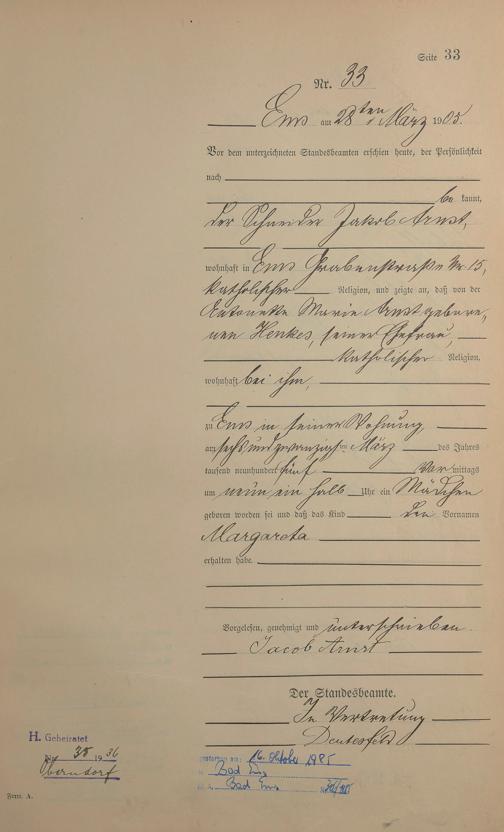 Seite 33
Nr. 33
Ems am 28ten März 1905.
Vor dem unterzeichneten Standesbeamten erschien heute, der Persönlichkeit
nach
be kannt,
der Schneider Jakob Arnst,
wohnhaft in Ems Grabenstraße Nr. 15,
katholischer Religion, und zeigte an, daß von der
Antonetta Maria Arnst gebore,
nen Henkes, seiner Ehefrau,
katholischer Religion,
wohnhaft bei ihm,
zu Ems in seiner Wohnung
am sechsundzwanzigsten März des Jahres
tausend neunhundert fünf Vor mittags
um neun ein halb Uhr ein Mädchen
geboren worden sei und daß das Kind den Vornamen
Margareta
erhalten habe.
Vorgelesen, genehmigt und unterschrieben
Jacob Arnst
Der Standesbeamte.
In Vertretung
H. Geheiratet
Nr. 35 1936
Oberndorf
gestorben am: 16. Oktober 1985
Bad Ems
Bad Ems
Form. A.